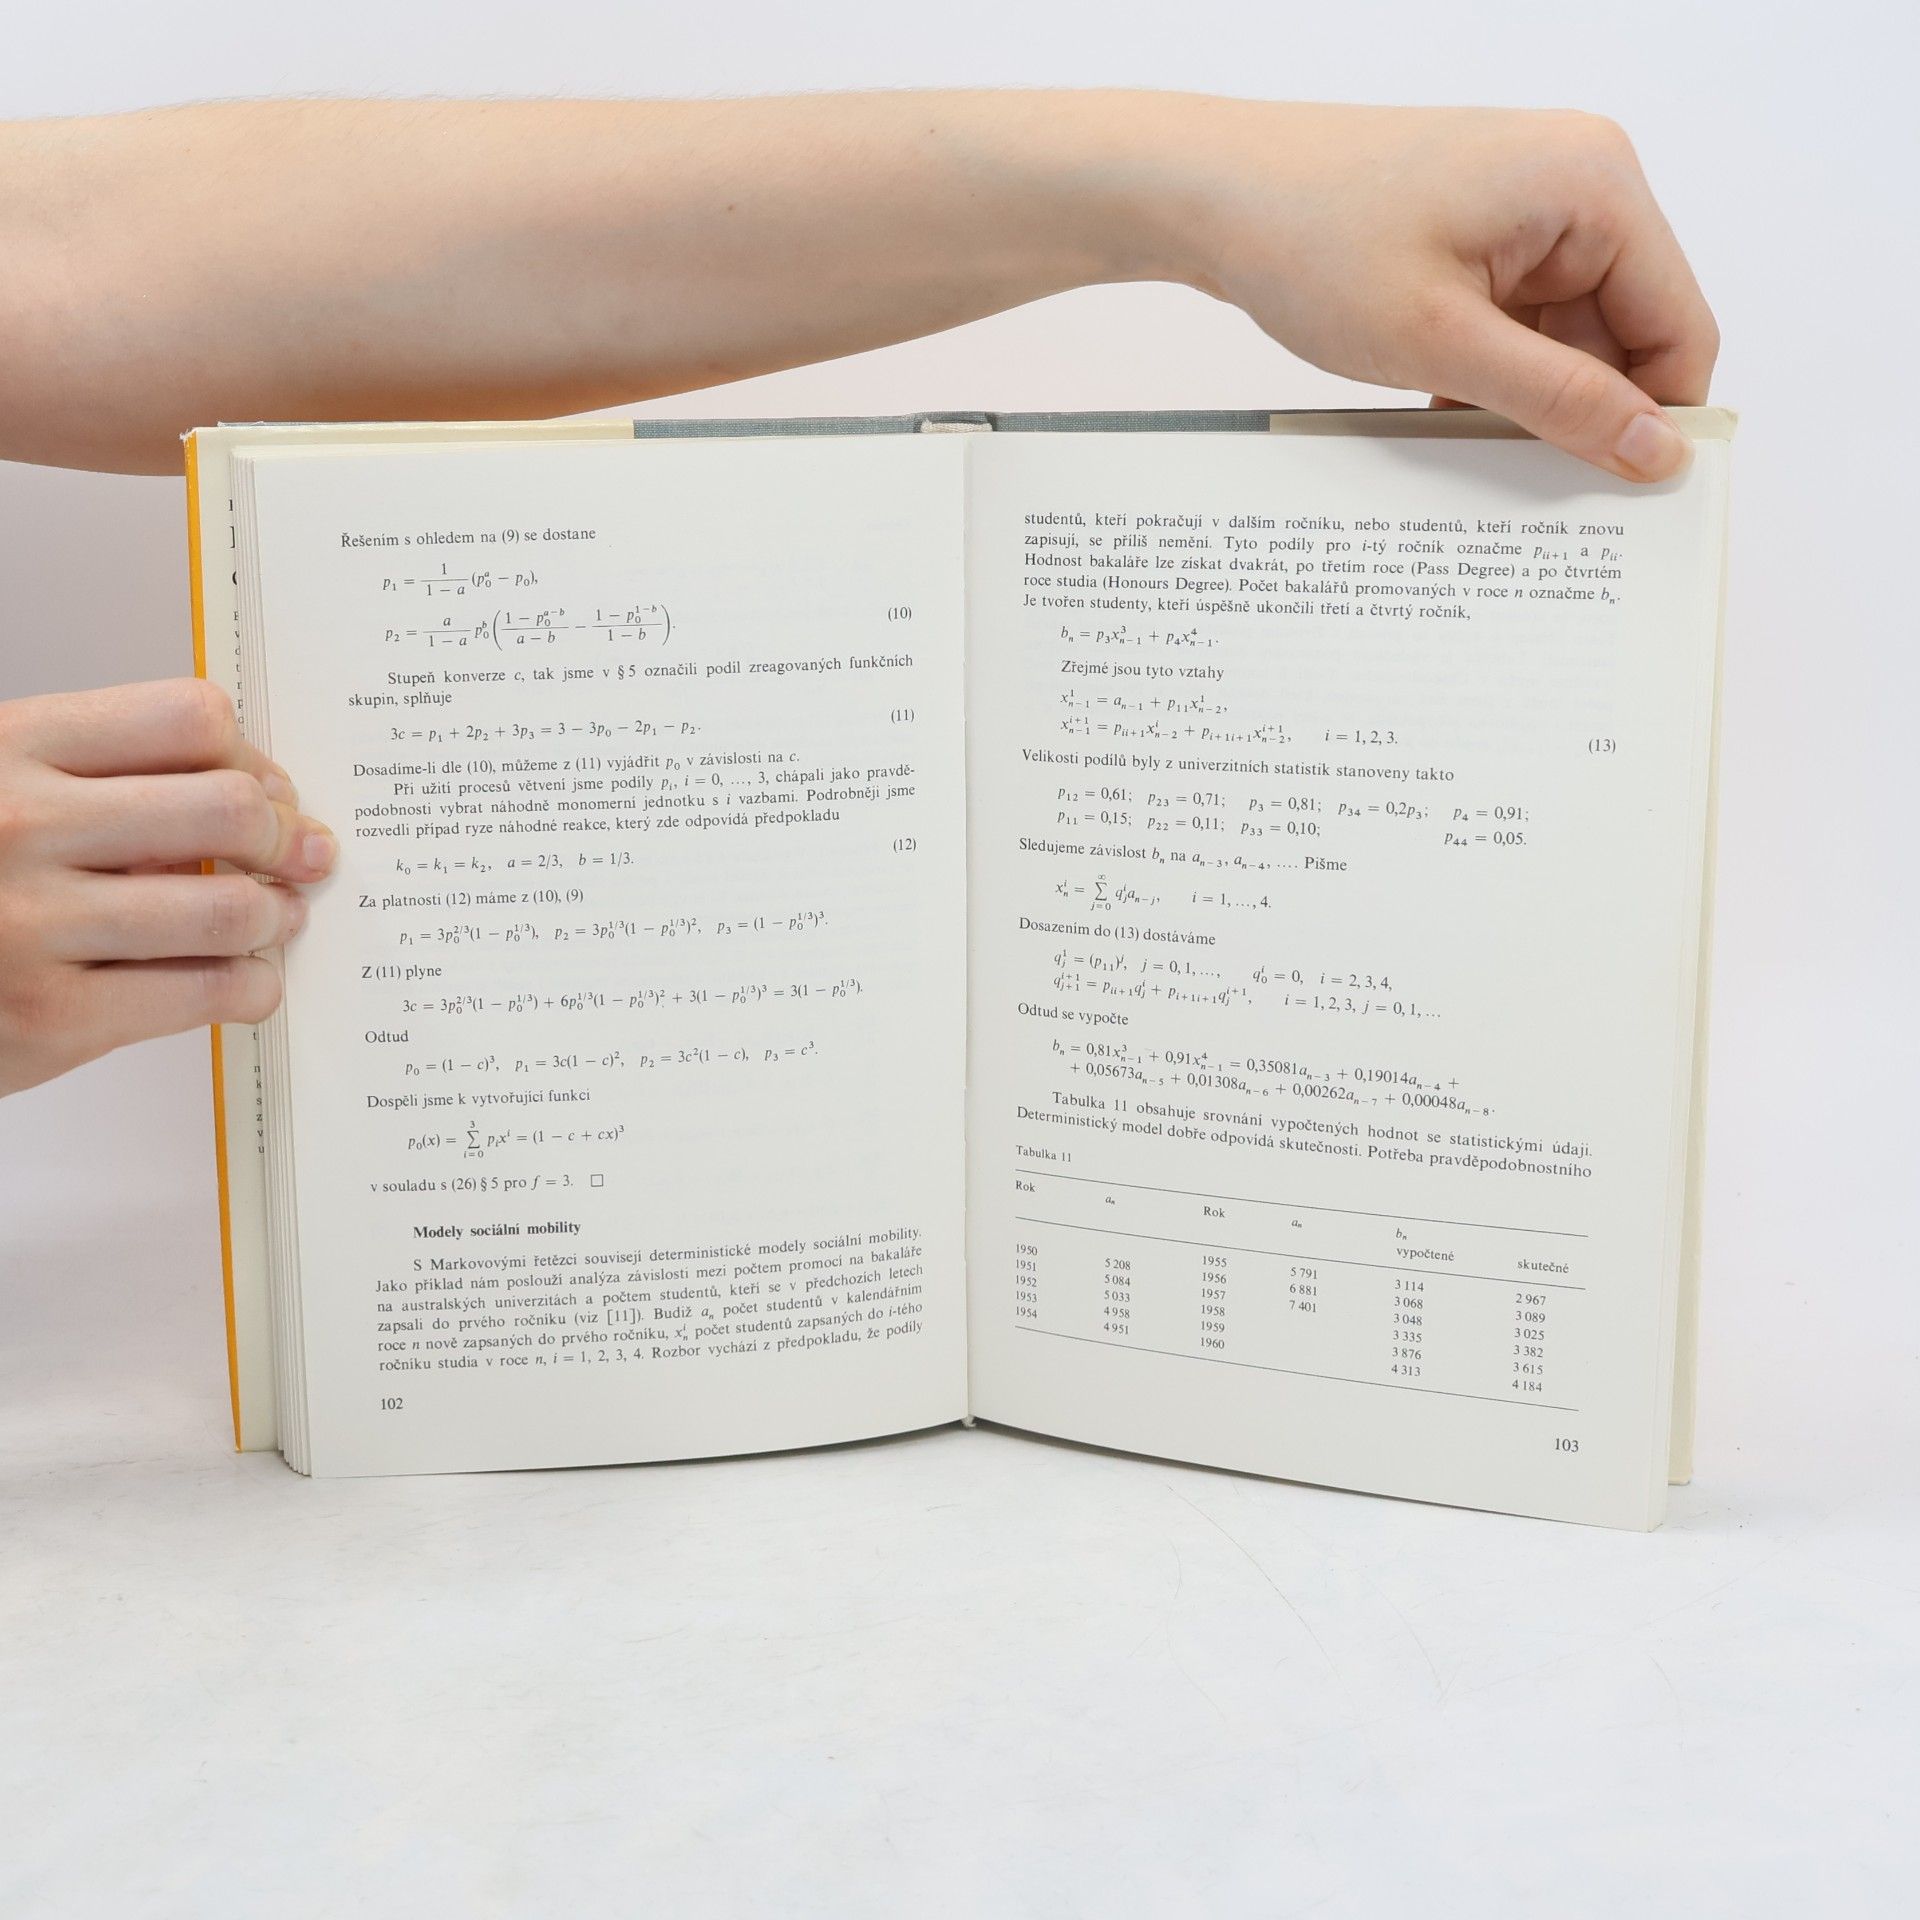 Řešením s ohledem na (9) se dostane
p₁ = 1/(1 − a) (p₀ᵃ − p₀),
p₂ = a/(1 − a) p₀ᵇ ((1 − p₀ᵃ⁻ᵇ)/(a − b) − (1 − p₀¹⁻ᵇ)/(1 − b)). (10)
Stupeň konverze c, tak jsme v § 5 označili podíl zreagovaných funkčních
skupin, splňuje
3c = p₁ + 2p₂ + 3p₃ = 3 − 3p₀ − 2p₁ − p₂. (11)
Dosadíme-li dle (10), můžeme z (11) vyjádřit p₀ v závislosti na c.
Při užití procesů větvení jsme podíly pᵢ, i = 0, ..., 3, chápali jako pravdě-
podobnosti vybrat náhodně monomerní jednotku s i vazbami. Podrobněji jsme
rozvedli případ ryze náhodné reakce, který zde odpovídá předpokladu
k₀ = k₁ = k₂, a = 2/3, b = 1/3. (12)
Za platnosti (12) máme z (10), (9)
p₁ = 3p₀^{2/3}(1 − p₀^{1/3}), p₂ = 3p₀^{1/3}(1 − p₀^{1/3})², p₃ = (1 − p₀^{1/3})³.
Z (11) plyne
3c = 3p₀^{2/3}(1 − p₀^{1/3}) + 6p₀^{1/3}(1 − p₀^{1/3})² + 3(1 − p₀^{1/3})³ = 3(1 − p₀^{1/3}).
Odtud
p₀ = (1 − c)³, p₁ = 3c(1 − c)², p₂ = 3c²(1 − c), p₃ = c³.
Dospěli jsme k vytvořující funkci
p₀(x) = ∑_{i=0}^{3} pᵢxⁱ = (1 − c + cx)³
v souladu s (26) § 5 pro f = 3. □
Modely sociální mobility
S Markovovými řetězci souvisejí deterministické modely sociální mobility.
Jako příklad nám poslouží analýza závislosti mezi počtem promocí na bakaláře
na australských univerzitách a počtem studentů, kteří se v předchozích letech
zapsali do prvého ročníku (viz [11]). Budiž aₙ počet studentů v kalendářním
roce n nově zapsaných do prvého ročníku, xₙⁱ počet studentů zapsaných do i-tého
ročníku studia v roce n, i = 1, 2, 3, 4. Rozbor vychází z předpokladu, že podíly
102
studentů, kteří pokračují v dalším ročníku, nebo studentů, kteří ročník znovu
zapisují, se příliš nemění. Tyto podíly pro i-tý ročník označme p_{ii+1} a p_{ii}.
Hodnost bakaláře lze získat dvakrát, po třetím roce (Pass Degree) a po čtvrtém
roce studia (Honours Degree). Počet bakalářů promovaných v roce n označme bₙ.
Je tvořen studenty, kteří úspěšně ukončili třetí a čtvrtý ročník,
bₙ = p₃x³_{n−1} + p₄x⁴_{n−1}.
Zřejmé jsou tyto vztahy
x¹_{n−1} = a_{n−1} + p₁₁x¹_{n−2},
x^{i+1}_{n−1} = p_{ii+1}x^{i}_{n−2} + p_{i+1i+1}x^{i+1}_{n−2}, i = 1, 2, 3. (13)
Velikosti podílů byly z univerzitních statistik stanoveny takto
p₁₂ = 0,61; p₂₃ = 0,71; p₃ = 0,81; p₃₄ = 0,2p₃; p₄ = 0,91;
p₁₁ = 0,15; p₂₂ = 0,11; p₃₃ = 0,10; p₄₄ = 0,05.
Sledujeme závislost bₙ na a_{n−3}, a_{n−4}, .... Pišme
xₙⁱ = ∑_{j=0}^{∞} q_j^i a_{n−j}, i = 1, ..., 4.
Dosazením do (13) dostáváme
q_j^1 = (p₁₁)^j, j = 0, 1, ..., q_0^i = 0, i = 2, 3, 4,
q_{j+1}^{i+1} = p_{ii+1}q_j^i + p_{i+1i+1}q_j^{i+1}, i = 1, 2, 3, j = 0, 1, ...
Odtud se vypočte
bₙ = 0,81x³_{n−1} + 0,91x⁴_{n−1} = 0,35081a_{n−3} + 0,19014a_{n−4} +
+ 0,05673a_{n−5} + 0,01308a_{n−6} + 0,00262a_{n−7} + 0,00048a_{n−8}.
Tabulka 11 obsahuje srovnání vypočtených hodnot se statistickými údaji.
Deterministický model dobře odpovídá skutečnosti. Potřeba pravděpodobnostního
Tabulka 11
Rok aₙ Rok aₙ bₙ
vypočtené skutečné
1950 5 208 1955 5 791 3 114 2 967
1951 5 084 1956 6 881 3 068 3 089
1952 5 033 1957 7 401 3 048 3 025
1953 4 958 1958 3 335 3 382
1954 4 951 1959 3 876 3 615
1960 4 313 4 184
103